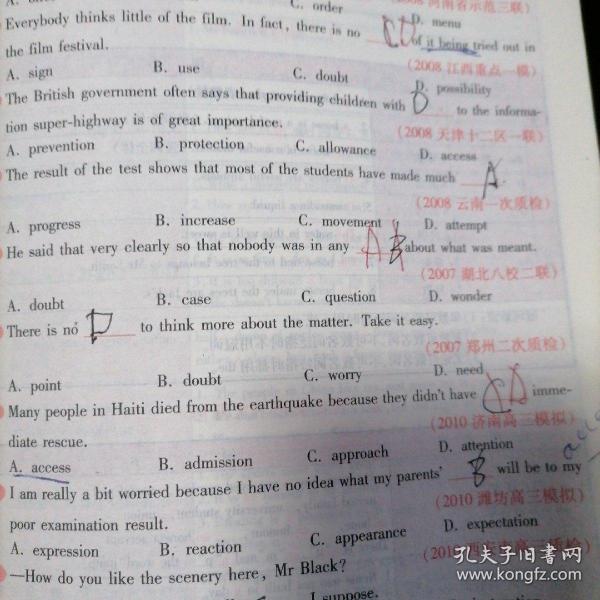 C. order
(2008 河南省示范三联)
Everybody thinks little of the film. In fact, there is no CD D. menu
the film festival. of it being tried out in
(2008 江西重点一模)
A. sign B. use C. doubt D. possibility
The British government often says that providing children with D to the informa-
tion super-highway is of great importance. (2008 天津十二区一联)
A. prevention B. protection C. allowance D. access
The result of the test shows that most of the students have made much A.
(2008 云南一次质检)
A. progress B. increase C. movement D. attempt
He said that very clearly so that nobody was in any A B about what was meant.
(2007 湖北八校二联)
A. doubt B. case C. question D. wonder
There is no D to think more about the matter. Take it easy.
(2007 郑州二次质检)
A. point B. doubt C. worry D. need
Many people in Haiti died from the earthquake because they didn't have C D imme-
diate rescue. (2010 济南高三模拟)
A. access B. admission C. approach D. attention
I am really a bit worried because I have no idea what my parents' B will be to my
poor examination result. (2010 潍坊高三模拟)
A. expression B. reaction C. appearance D. expectation
—How do you like the scenery here, Mr Black?
I suppose.
孔夫子旧书网
www.kongfz.com